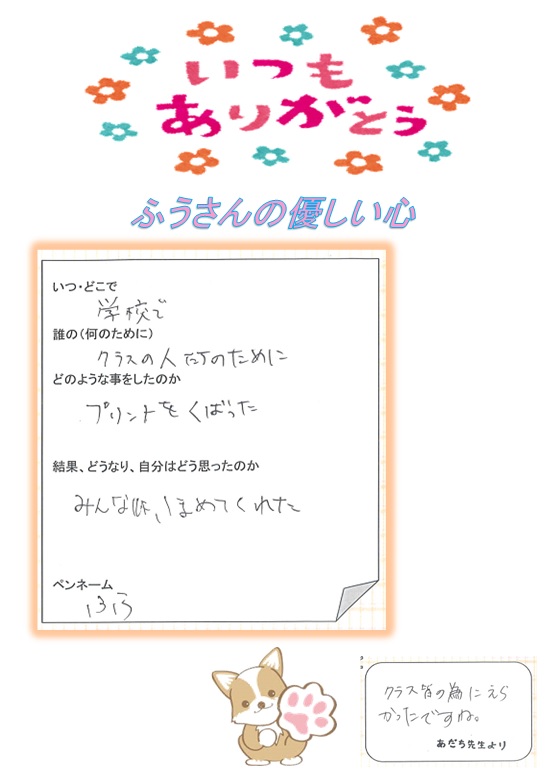 いつも
ありがとう
ふうさんの優しい心
いつ・どこで
学校で
誰の(何のために)
クラスの人たちのために
どのような事をしたのか
プリントをくばった
結果、どうなり、自分はどう思ったのか
みんなほめてくれた
ペンネーム
ふう
クラス皆の為にえら
かったですね。
あだち先生より